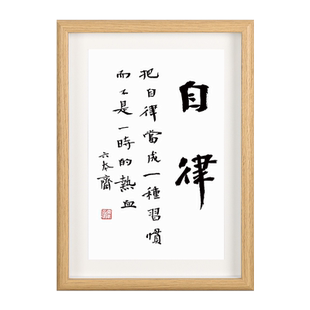 自律
把自律當成一種習慣
而不是一時的熱血
六本齋